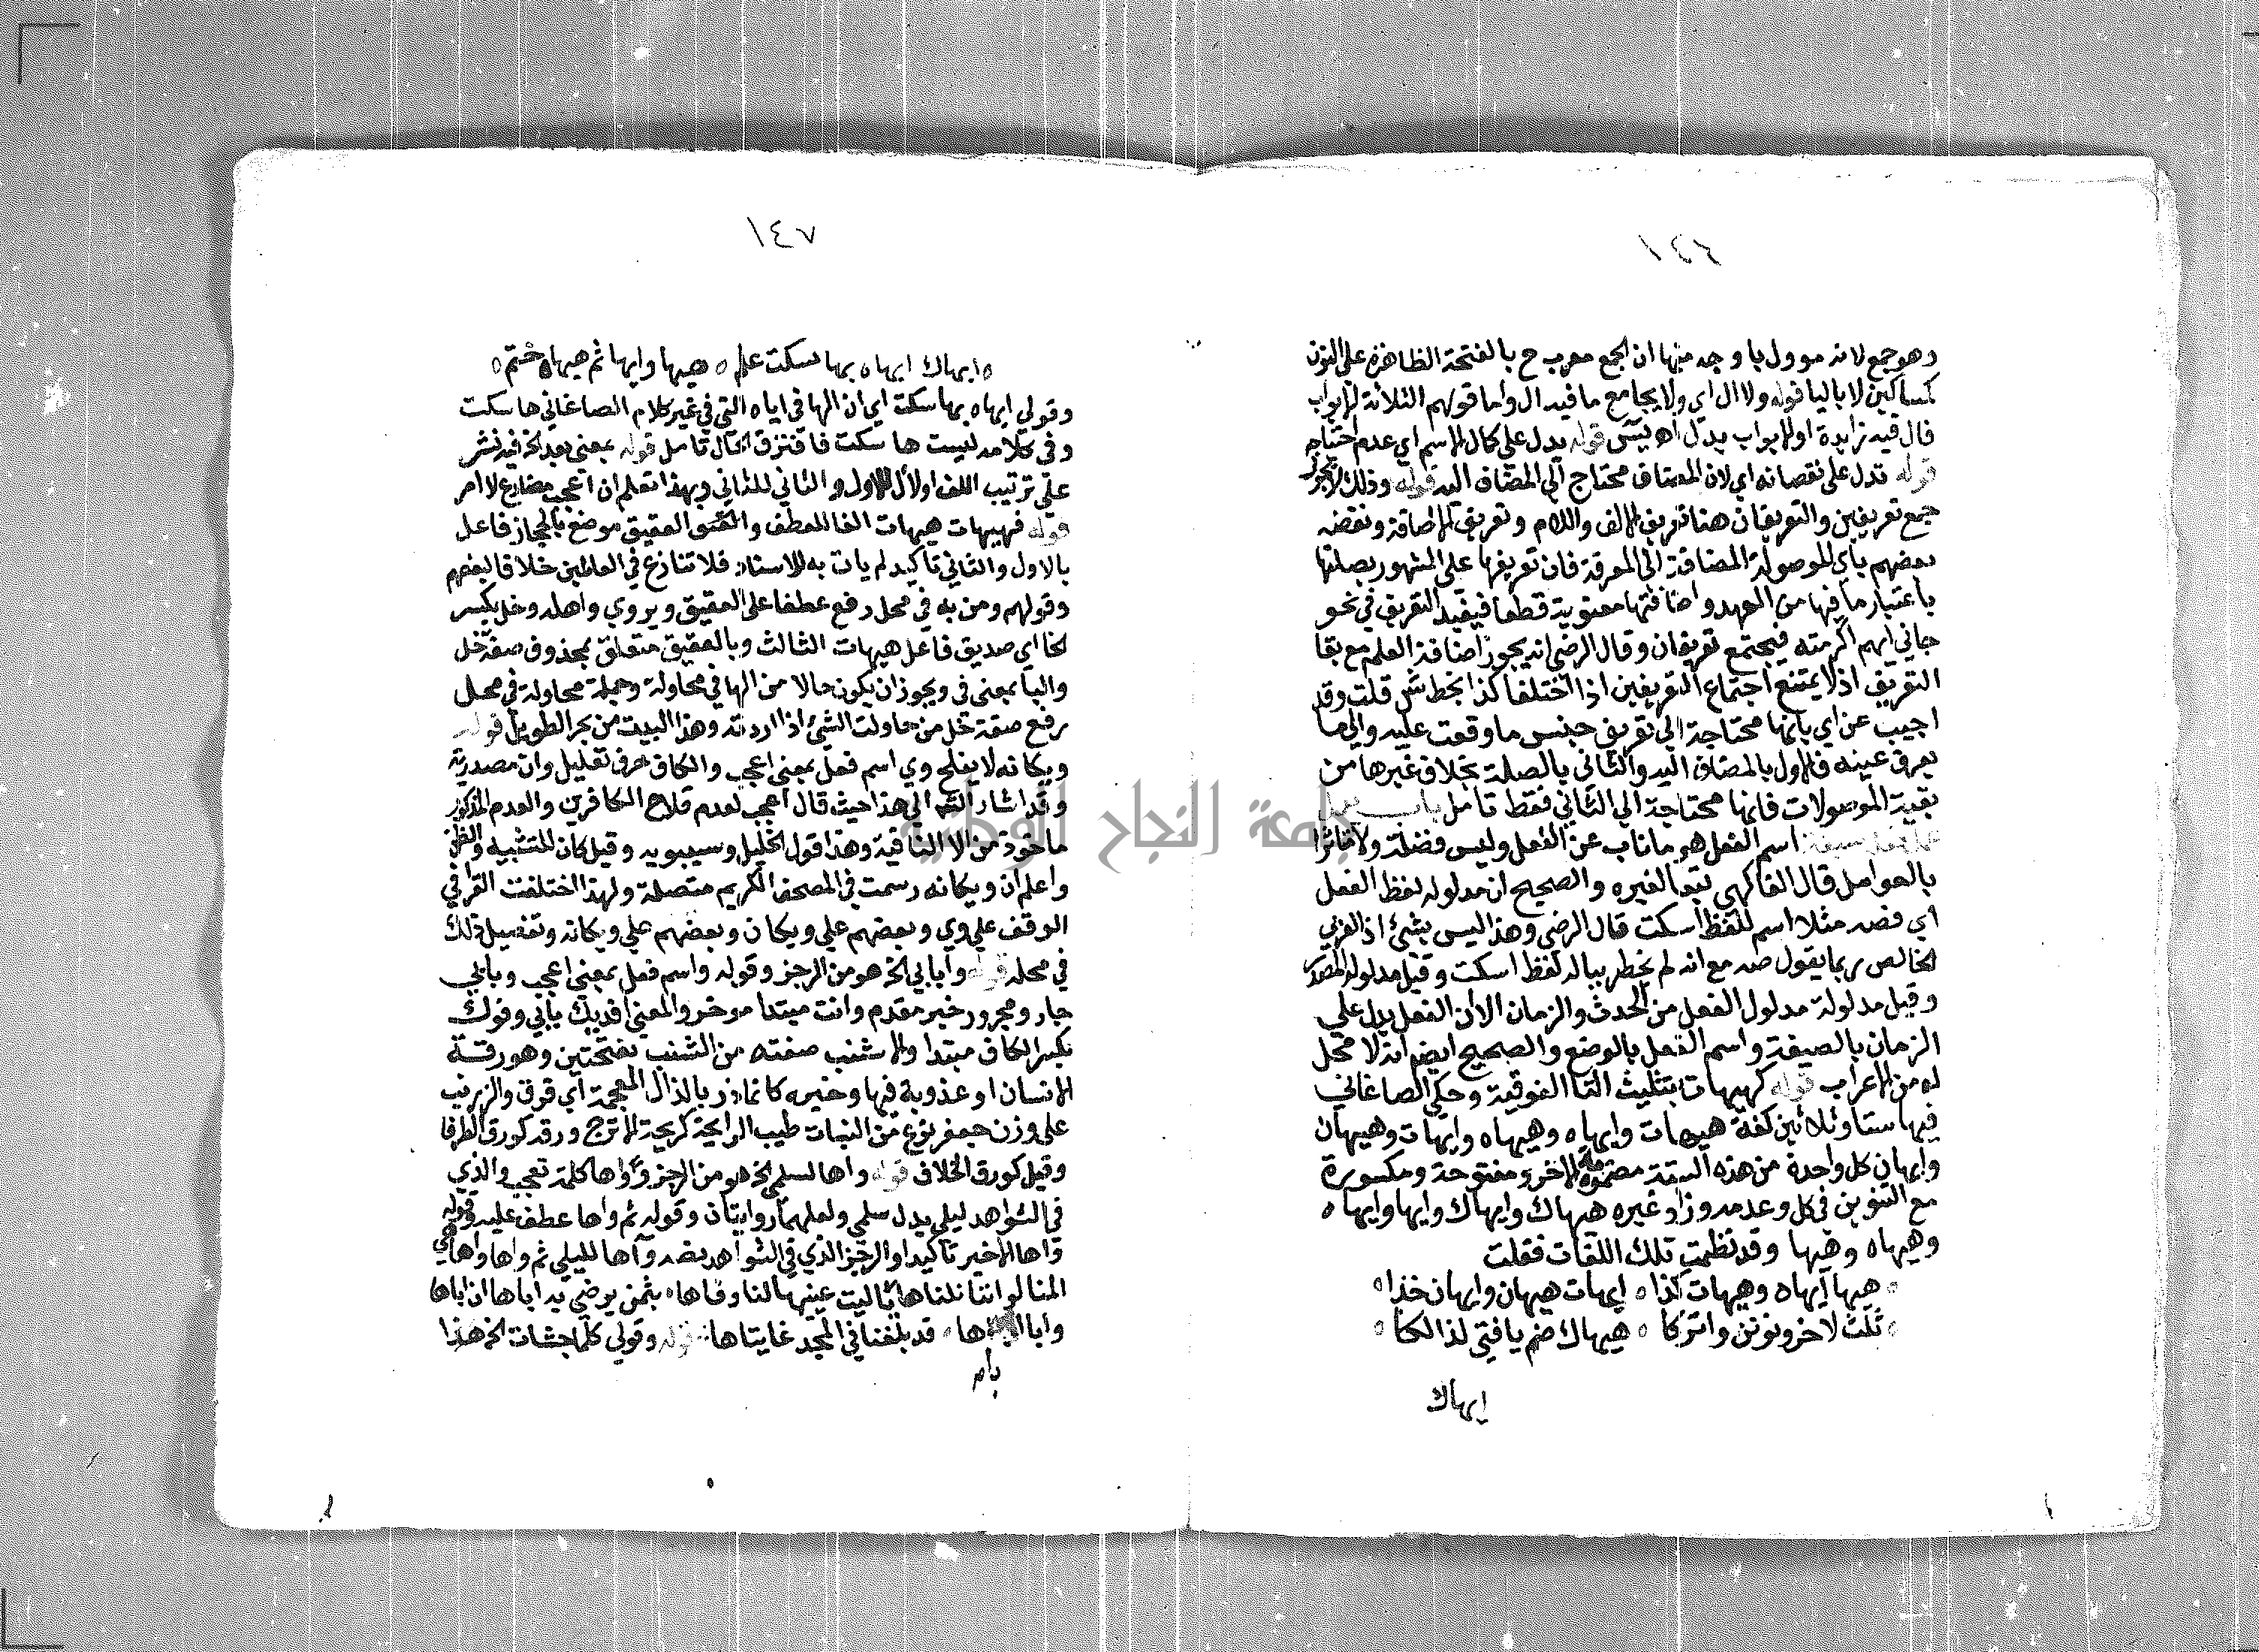 ١٤٦
وهو جمع لانه موول باوجه منها ان الجمع معرب ح بالفتحة الظاهرة على النون
كمساكين لا باليا قوله ولا ال اي ولا يجامع ما فيه ال واما قولهم الثلاثة الابواب
فال فيه زايدة او الابواب بدل اه يس قوله يدل على كمال الاسم اي عدم احتياجه
قوله تدل على نقصانه اي لان المضاف محتاج الى المضاف اليه قوله وذلك لا يجوز
جمع تعريفين والتعريفان هنا تعريف الالف واللام وتعريف الاضافة ونقضه
بعضهم باي الموصولة المضافة الى المعرفة فان تعريفها على المشهور بصلتها
باعتبار ما فيها من العهد واضافتها معنوية قطعا فيفيد التعريف في نحو
جاني ايهم اكرمته فيجتمع تعريفان وقال الرضي انه يجوز اضافة العلم مع بقا
التعريف اذ لا يمتنع اجتماع التعريفين اذا اختلفا كذا بخط ش قلت وقد
اجيب عن اي بانها محتاجة الى تعريف جنس ما وقعت عليه والى ما
يعرف عينه فالاول بالمضاف اليه والثاني بالصلة بخلاف غيرها من
بقية الموصولات فانها محتاجة الى الثاني فقط تامل باب يعمل
عمل فعله سبعة اسم الفعل هو ما ناب عن الفعل وليس فضلة ولا متاثرا
بالعوامل قال الفاكهي تبعا لغيره والصحيح ان مدلوله لفظ الفعل
اي فصه مثلا اسم للفظ اسكت قال الرضي وهذا ليس بشئ اذ العربي
الخالص ربما يقول صه مع انه لم يخطر بباله لفظ اسكت وقيل مدلوله المصدر
وقيل مدلولة مدلول الفعل من الحدث والزمان الا ان الفعل يدل على
الزمان بالصيغة واسم الفعل بالوضع والصحيح ايضا انه لا محل
له من الاعراب قوله كهيهات بتثليث التا الفوقية وحكى الصاغاني
فيها ستا وثلاثين لغة هيهات وايهاه وهيهاه وايهات وهيهان
وايهان كل واحدة من هذه الستة مضمومة الاخر ومفتوحة ومكسورة
مع التنوين في كل وعدمه وزاد غيره هيهاك وايهاك وايها وايهاه
وهيهاه وهيها وقد نظمت تلك اللغات فقلت
هيها ايهاه وهيهات كذا ه ايهات هيهان وايهان خذا ه
ثلث لاخر ونونن واتركا ه هيهاك ضم يا فتى لذا لكا ه
ايهاك
١٤٧
ه ايهاك ايهاه بها سكت علم ه هيها وايها ثم هيهاه ختم ه
وقولي ايهاه بها سكت اي ان الها في اياه التي في غير كلام الصاغاني ها سكت
وفي كلامه ليست ها سكت فافترق الحال تامل قوله بمعنى بعد الخ فيه نشر
على ترتيب اللف اولا للاول والثاني للثاني وبهذا تعلم ان اعجب مضارع لا امر
قوله فهيهات هيهات الفا للعطف والعقيق موضع بالحجاز فاعل
بالاول والثاني تاكيد لم يات به للاسناد فلا تنازع في العاملين خلافا لبعضهم
وقولهم ومن به في محل رفع عطفا على العقيق ويروي واهله وخل بكسر
الخا اي صديق فاعل هيهات الثالث وبالعقيق متعلق بمحذوف صفة خل
والبا بمعنى في ويجوز ان يكون حالا من الها في محاولة وجملة محاولة في محل
رفع صفة خل من حاولت الشئ اذا اردته وهذا البيت من بحر الطويل قوله
ويكانه لا يفلح وي اسم فعل بمعنى اعجب والكاف حرف تعليل وان مصدرية
وقد اشار الشه الى هذا حيث قال اعجب لعدم فلاح الكافرين والعدم المذكور
ماخوذ من الا النافية وهذا قول الخليل وسيبويه وقيل كان للتشبيه والظن
واعلم ان ويكانه رسمت في المصحف الكريم متصلة ولهذا اختلفت القرا في
الوقف على وي وبعضهم على ويكان وبعضهم على ويكانه وتفصيل ذلك
في محله قوله وا بابي الخ هو من الرجز وقوله وا اسم فعل بمعنى اعجب وبابي
جار ومجرور خبر مقدم وانت مبتدا موخر والمعنى افديك بابي وفوك
بكسر الكاف مبتدا والاشنب صفته من الشنب بفتحتين وهو رقة
الانسان او عذوبة فيها وخبره كانما ذر بالذال المعجمة اي فرق والزرنب
على وزن جعفر نوع من النبات طيب الرايحة كريحة الاترج وورقه كورق الطرفا
وقيل كورق الخلاف قوله واها لسلمى الخ هو من الرجز وواها كلمة تعجب والذي
في الشواهد ليلى بدل سلمى ولعلهما روايتان وقوله ثم واها عطف عليه وقوله
واها الاخير تاكيدا والرجز الذي في الشواهد بعضه وآها لليلى ثم واها واها هي
المنا لو اننا نلناها يا ليت عينيها لنا وفاها ه بثمن يرضي به اباها ان اباها
وابا اباها ه قد بلغنا في المجد غايتاها قوله وقولي كلما جشات الخ هذا